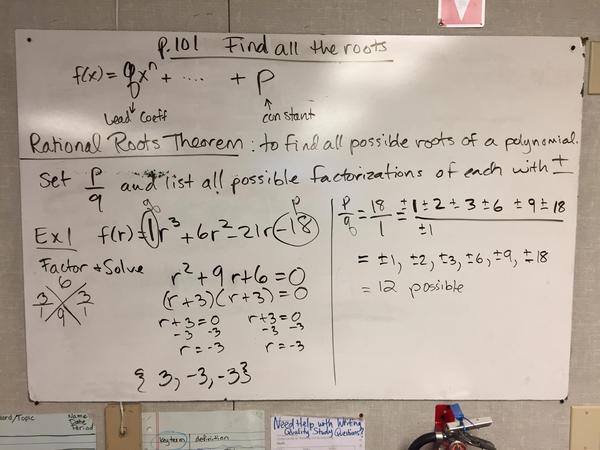 p.101 Find all the roots
f(x) = qxⁿ + .... + p
Lead Coeff
constant
Rational Roots Theorem: to find all possible roots of a polynomial.
Set p/q and list all possible factorizations of each with ±
q p
Ex1 f(r) = 1r³ + 6r² - 21r - 18
Factor + Solve
6
3 3
1 1
9
r² + 9r + 6 = 0
(r + 3)(r + 3) = 0
r + 3 = 0 r + 3 = 0
-3 -3 -3 -3
r = -3 r = -3
{ 3, -3, -3 }
p/q = 18/1 = ±1 ± 2 ± 3 ± 6 ± 9 ± 18
±1
= ±1, ±2, ±3, ±6, ±9, ±18
= 12 possible
Word/Topic
Name
Date
Period
Key term definition
Need Help with Writing
Quality Study Questions?